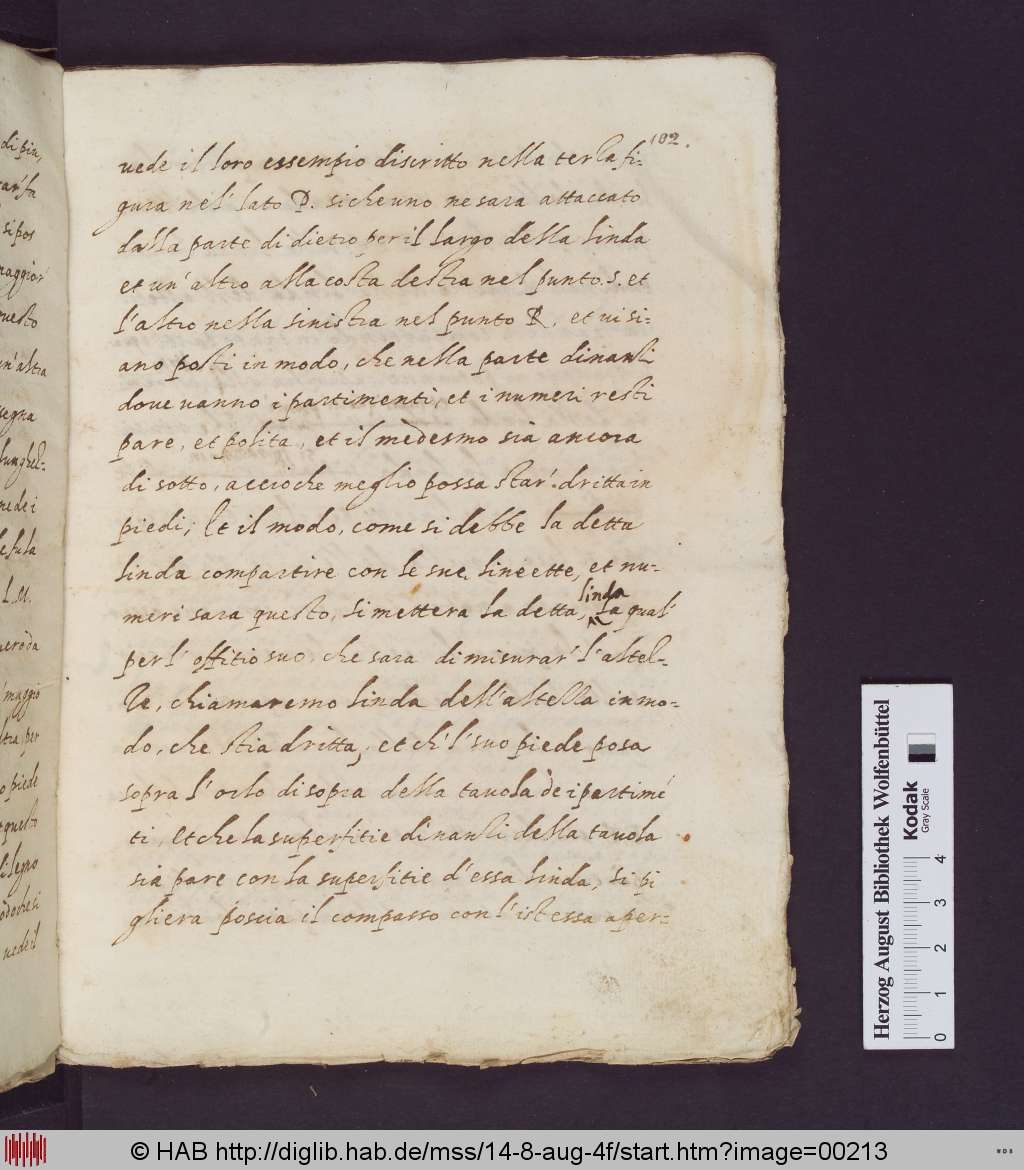 102.
vede il loro essempio discritto nella terza fi-
gura nel' lato D. siche uno ne sara attaccato
dalla parte di dietro per il largo della linda
et un' altro alla costa destra nel punto. S. et
l'altro nella sinistra nel punto R. et vi si-
ano posti in modo, che nella parte dinanzi
dove vanno i partimenti, et i numeri resti
pare, et polita, et il medesmo sia ancora
di sotto, accioche meglio possa star' dritta in
piedi; Et il modo, come si debbe la detta
linda compartire con le sue lineette, et nu-
meri sara questo, si mettera la detta, linda la qual'
per l' offitio suo, che sara di misurar' l'altez-
ze, chiamaremo linda dell'altezza in mo-
do, che stia dritta, et ch'l' suo piede posa
sopra l' orlo di sopra della tavola de i partimé
ti, Et che la superfitie dinanzi della tavola
sia pare con la superfitie d' essa linda, si pi
gliera poscia il compasso con l' istessa aper-
di piu,
si pos
maggior'
questo
un' altra
segna
lunghez-
vede i
L. M.
maggio
piede
questo
di legno
vede il
Herzog August Bibliothek Wolfenbüttel
Kodak
Gray Scale
0 1 2 3 4
© HAB http://diglib.hab.de/mss/14-8-aug-4f/start.htm?image=00213